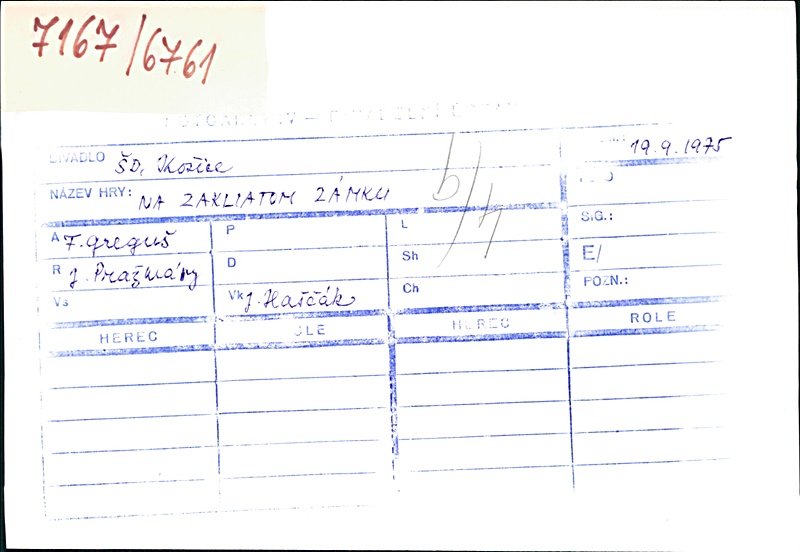 7167/6761
DIVADLO ŠD, Košice 19.9.1975
NÁZEV HRY: NA ZAKLIATOM ZÁMKU b/4
A F. Greguš P L SIG.:
R J. Pražmáry D Sh E/
Vs Vk J. Haščák Ch POZN.:
HEREC OLE HEREC ROLE